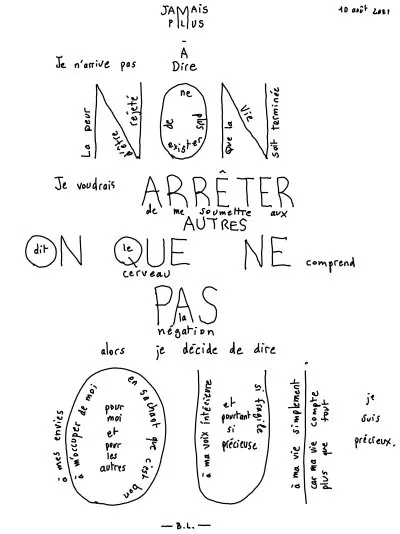 JAMAIS
PLUS
10 août 2021
À
Je n'arrive pas Dire
NON
La peur d'être rejeté
de ne plus exister
Que la vie soit terminée
Je voudrais ARRÊTER
de me soumettre aux
AUTRES
ON QUE NE comprend
dit le
cerveau
PAS
la
négation
alors je décide de dire
OUI
à mes envies
à m'occuper de moi
en sachant que c'est bon
pour
moi
et
pour
les
autres
à ma voix intérieure
et
pourtant
si
précieuse
si fragile
à ma vie simplement
car ma vie compte
plus que tout
je
suis
précieux.
— B.L. —